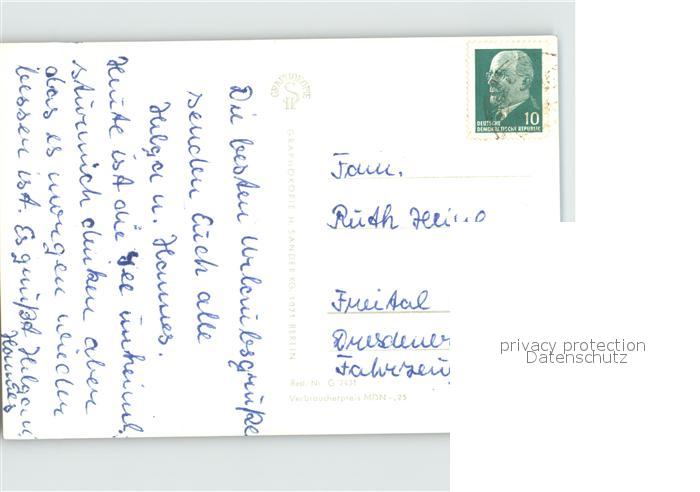 Die besten Urlaubsgrüße
senden Euch alle
Helga u. Hannes.
Heute ist die See unheiml.
stürmisch denken aber
das es morgen wieder
besser ist. Es grüßt Helga u.
Hannes
GRAPHOKOPIE
GRAPHOKOPIE H. SANDER KG, 1071 BERLIN
10
DEUTSCHE
DEMOKRATISCHE REPUBLIK
Fam.
Ruth
Freital
Dresdener
Best. Nr. G 2431
Verbraucherpreis MDN -,25
privacy protection
Datenschutz